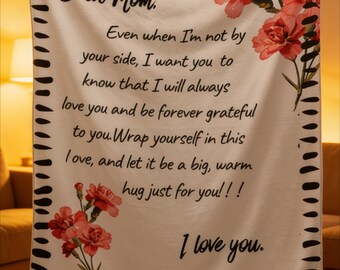 Mom,
Even when I'm not by
your side, I want you to
know that I will always
love you and be forever grateful
to you.Wrap yourself in this
love, and let it be a big, warm
hug just for you!!!
I love you.